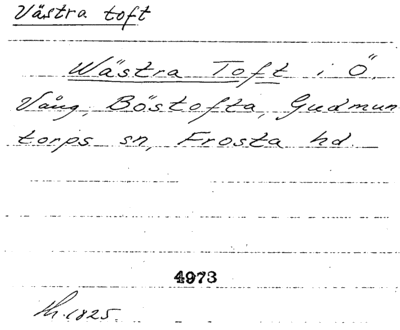 Västra toft
Wästra Toft i Ö.
Vång, Böstofta, Gudmun
torps sn, Frosta hd.
4973
1825.